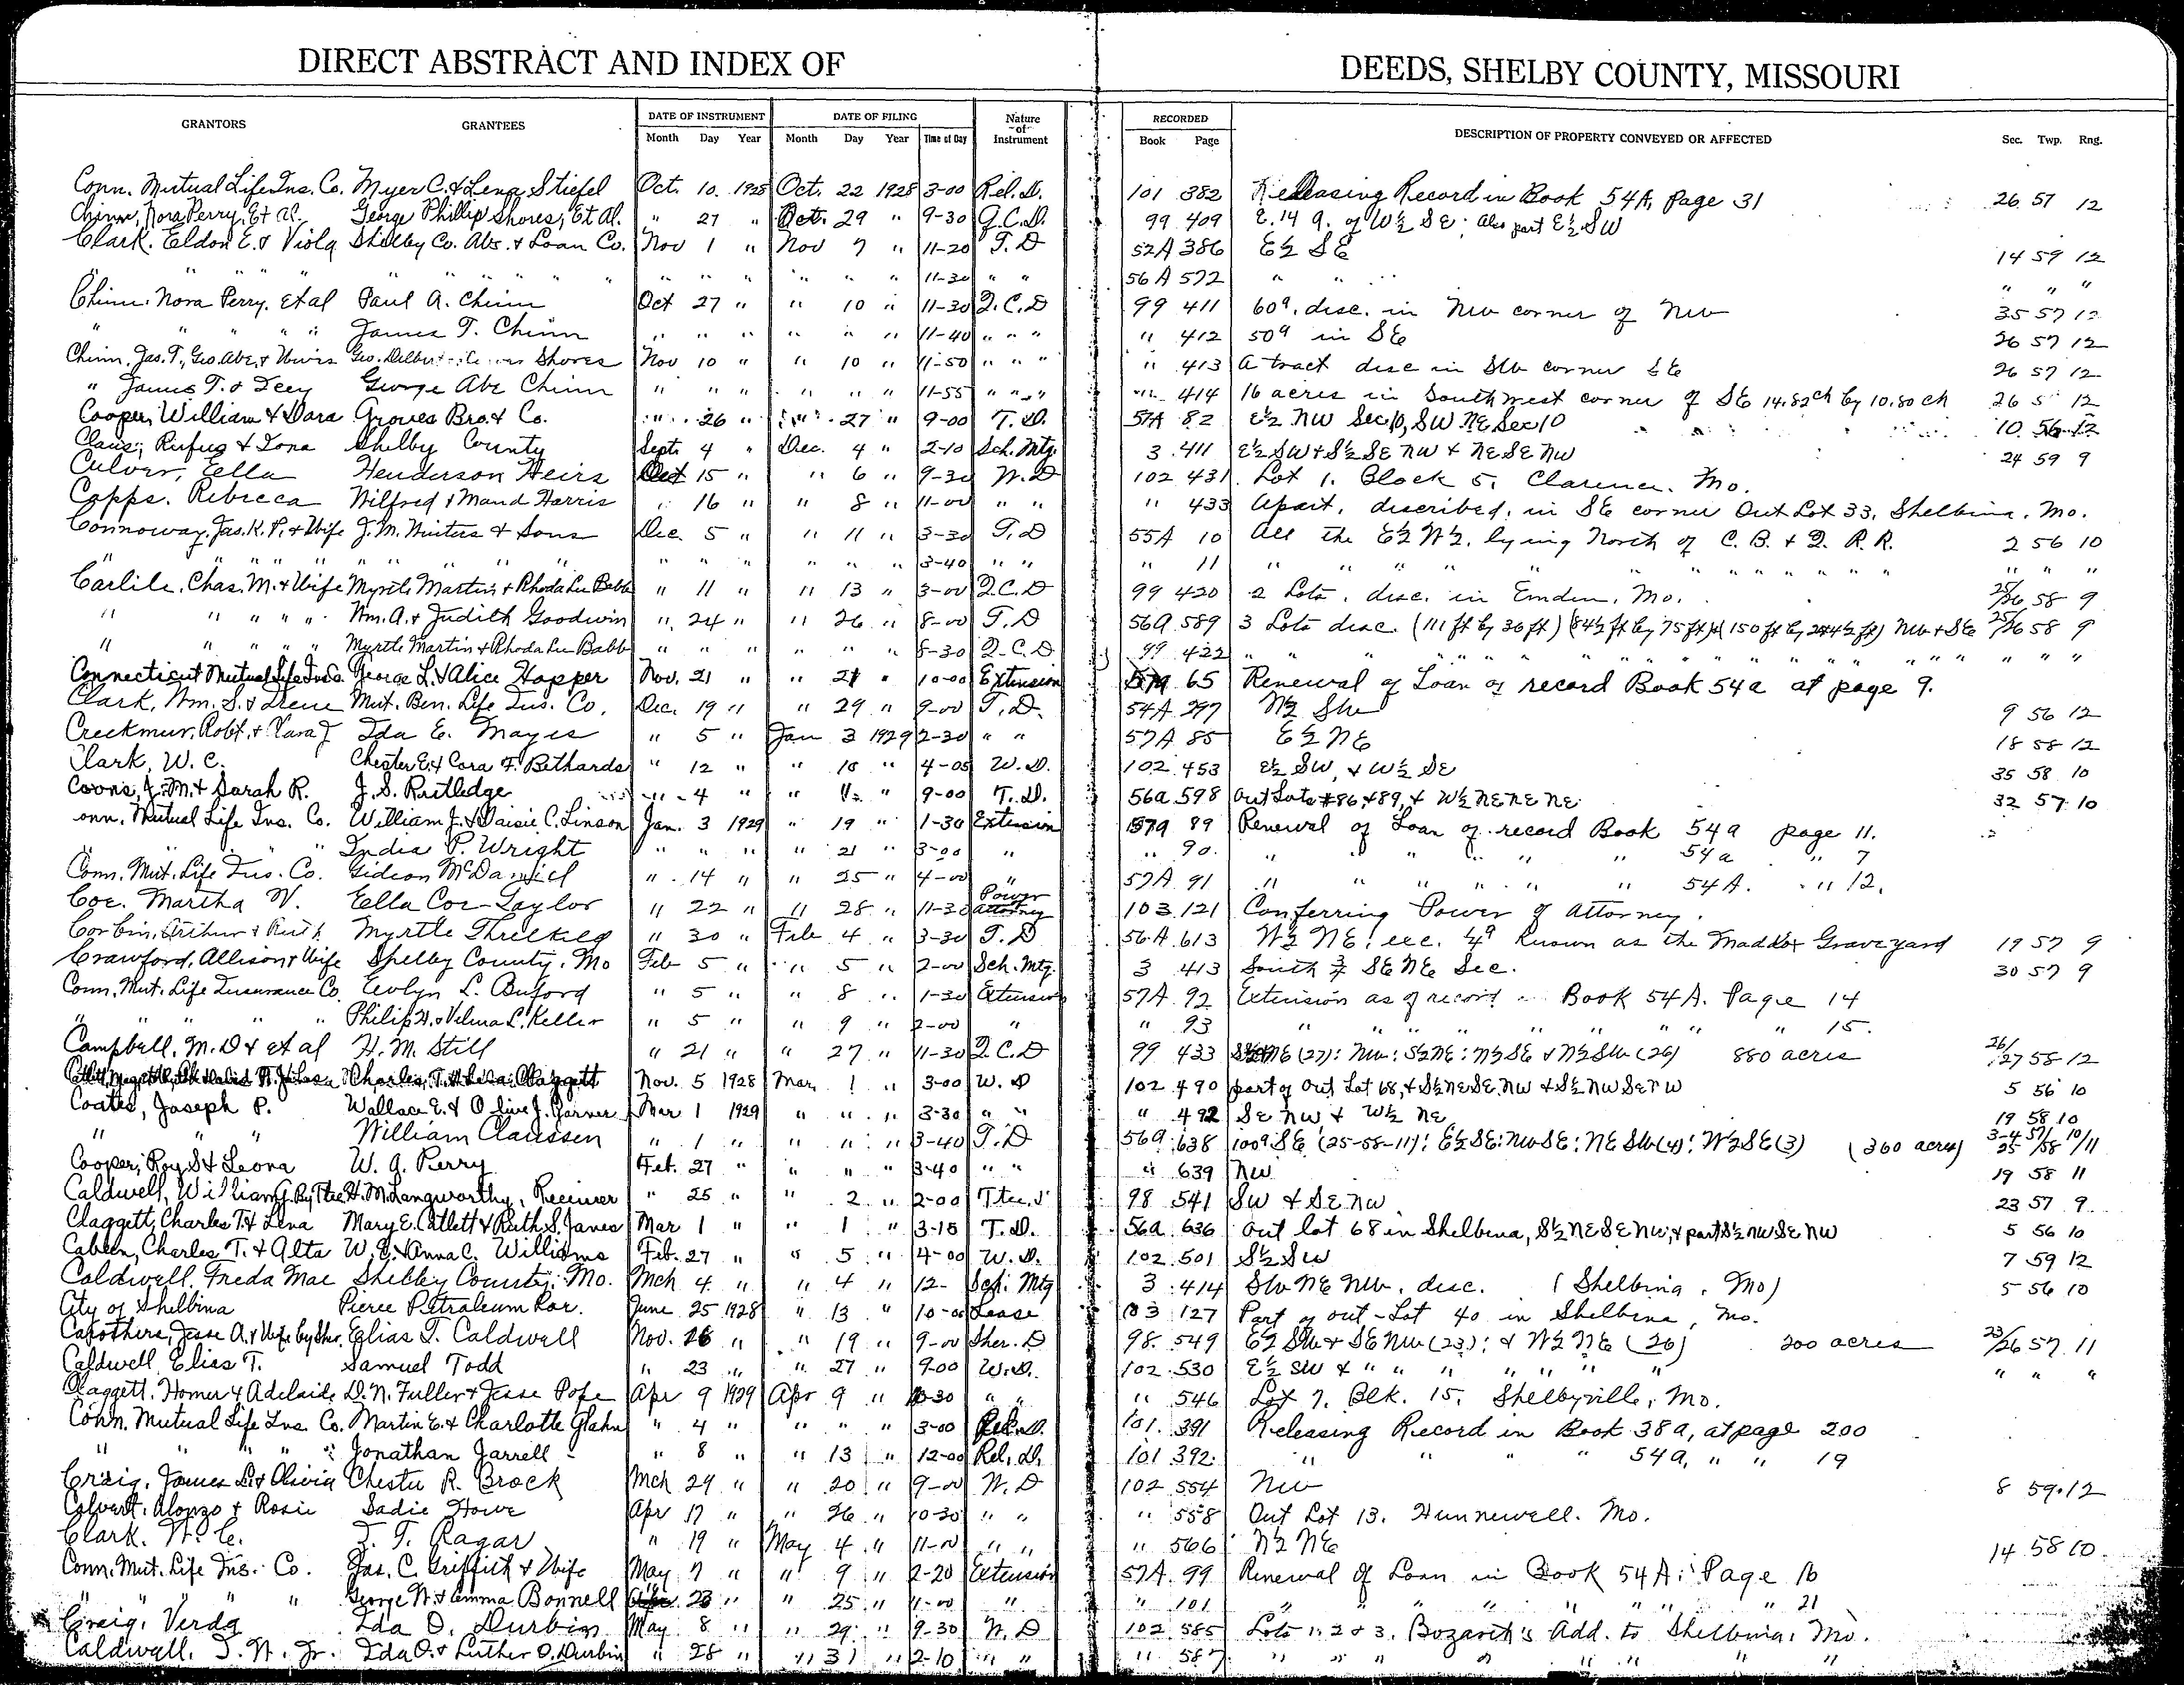 DIRECT ABSTRACT AND INDEX OF DEEDS, SHELBY COUNTY, MISSOURI
GRANTORS GRANTEES DATE OF INSTRUMENT DATE OF FILING Nature of Instrument RECORDED DESCRIPTION OF PROPERTY CONVEYED OR AFFECTED Sec. Twp. Rng.
Month Day Year Month Day Year Time of Day Book Page
Conn. Mutual Life Ins. Co. Myer C. & Lena Stiefel Oct. 10. 1928 Oct. 22 1928 3-00 Rel. D. 101 382 Releasing Record in Book 54A, Page 31 26 57 12
Chinn, Nora Perry, Et al. George Phillip Shores, Et al. " 27 " Oct. 29 " 9-30 Q.C.D. 99 409 E. 14 a. of W½ SE; Also part E½ SW
Clark. Eldon E. & Viola Shelby Co. Abs. & Loan Co. Nov 1 " Nov 7 " 11-20 T. D 52A 386 E½ SE 14 59 12
" " " " " " " " " " " " " " " 11-30 " " 56A 572 " " " " " "
Chinn. Nora Perry. Et al Paul A. Chinn Oct 27 " " 10 " 11-30 Q.C.D 99 411 60a. disc. in NW corner of NW 35 57 12
" " " " James T. Chinn " " " " " " 11-40 " " " " 412 50a in SE 26 57 12
Chinn, Jas. T., Geo. Abe, & Geo. Delbert Shores Nov 10 " " 10 " 11-50 " " " " 413 A tract disc in SW corner SE 26 57 12
" James T. & George Abe Chinn " " " " " " 11-55 " " " " 414 16 acres in Southwest corner of SE 14.82ch by 10.80 ch 26 5 12
Cooper, William & Dora Groves Bro. & Co. " 26 " " 27 " 9-00 T. D. 57A 82 E½ NW Sec 10, SW NE Sec 10 10 56 12
Claus, Rufus & Iona Shelby County Sept. 4 " Dec. 4 " 2-10 Sch. Mtg. 3 411 E½ SW & S½ SE NW & NE SE NW 24 59 9
Culver, Ella Henderson Heirs Oct 15 " " 6 " 9-30 W. D 102 431 Lot 1. Block 5, Clarence. Mo.
Capps. Rebecca Wilfred & Maud Harris " 16 " " 8 " 11-00 " " " 433 Apart. described. in SE corner Out Lot 33. Shelbina. Mo.
Connoway, Jas. K. P. & Wife J. M. Winters & Sons Dec. 5 " " 11 " 3-30 T. D 55A 10 All the E½ W½. lying North of C. B. & Q. R. R. 2 56 10
" " " " " " " " " " " " " " " 3-40 " " " 11 " " " " " " " " " " " " " " "
Carlile, Chas. M. & Wife Myrtle Martin & Rhoda Lee Babb " 11 " " 13 " 3-00 Q.C.D 99 420 2 Lots. disc. in Emden, Mo. 25/26 58 9
" " " " " Wm. A. & Judith Goodwin " 24 " " 26 " 8-00 T. D 56A 589 3 Lots disc. (111 ft by 36 ft) (84½ ft by 75 ft) & (150 ft by 244½ ft) NW & SE 25/26 58 9
" " Myrtle Martin & Rhoda Lee Babb " " " " " " 8-30 Q.C.D 99 422 " " " " " " " " " " " " " " " " "
Connecticut Mutual Life Ins. Co. George L. & Alice Hopper Nov. 21 " " 21 " 10-00 Extension 57A 65 Renewal of Loan of record Book 54a at page 9.
Clark, Wm. S. & Irene Mut. Ben. Life Ins. Co. Dec. 19 " " 29 " 9-00 T. D. 54A 297 N½ SW 9 56 12
Creekmur, Robt. & Ida E. Mayes " 5 " Jan 3 1929 2-30 " " 57A 85 E½ NE 18 58 12
Clark, W. C. Chester E. & Cora F. Bethards " 12 " " 10 " 4-05 W. D. 102 453 E½ SW & W½ SE 35 58 10
Coons, J. M. & Sarah R. J. S. Rutledge " 4 " " 9-00 T. D. 56a 598 Out Lots #86 & 89, & W½ NE NE NE 32 57 10
onn. Mutual Life Ins. Co. William J. & Daisie C. Linson Jan. 3 1929 " 19 " 1-30 Extension 57a 89 Renewal of Loan of record Book 54a page 11.
" " " India P. Wright " " " " 21 " 3-00 " " 90. " " " " " " 54a " 7
Conn. Mut. Life Ins. Co. Gideon McDaniel " 14 " " 25 " 4-00 " 57A 91 " " " " " " 54A. " 12.
Coe. Martha W. Ella Coe-Taylor " 22 " " 28 " 11-30 Power Attorney 103 121 Conferring Power of Attorney.
Corbin, Arthur & Ruth Myrtle Threlkeld " 30 " Feb 4 " 3-30 T. D 56A 613 W½ NE; exc. ¼a known as the Maddox Graveyard 19 57 9
Crawford, Allison & Wife Shelby County. Mo Feb 5 " " 5 " 2-00 Sch. Mtg. 3 413 South ¾ SE NE Sec. 30 57 9
Conn. Mut. Life Insurance Co. Evolyn L. Buford " 5 " " 8 " 1-30 Extension 57A 92 Extension as of record Book 54A. Page 14
" " " " " Philip H. & Velma L. Keller " 5 " " 9 " 2-00 " " 93 " " " " " " " " 15.
Campbell. M. D & et al H. M. Still " 21 " " 27 " 11-30 Q.C.D 99 433 NE (27): NW: S½ NE: N½ SE & N½ SW (26) 880 acres 26/27 58 12
Charles T. & Lena Claggett Nov. 5 1928 Mar 1 " 3-00 W. D 102 490 part of Out Lot 68, & S½ NE SE NW & S½ NW SE NW 5 56 10
Coates, Joseph P. Wallace E. & Olive J. Garner Mar 1 1929 " " " 3-30 " " " 492 SE NW & W½ NE 19 58 10
" " " William Claussen " 1 " " " " 3-40 T. D 56a 638 100a SE (25-58-11): E½ SE: NW SE: NE SW (4): W½ SE (3) (360 acres) 3-4 57/ 10/ 25 /58 /11
Cooper, Roy S & Leona W. A. Perry Feb. 27 " " " " 3-40 " " " 639 NW 19 58 11
Caldwell, William G. By Ttee H. M. Langworthy, Receiver " 25 " " 2 " 2-00 98 541 SW & SE NW 23 57 9
Claggett, Charles T. & Lena Mary E. Catlett & Ruth S. Janes Mar 1 " " 1 " 3-15 T. D. 56a 636 Out lot 68 in Shelbina, S½ NE SE NW, & part S½ NW SE NW 5 56 10
Cabeen, Charles T. & Alta W. E. & Anna C. Williams Feb. 27 " " 5 " 4-00 W. D. 102 501 S½ SW 7 59 12
Caldwell, Freda Mae Shelby County. Mo. Mch 4 " " 4 " 12- Sch. Mtg 3 414 SW NE NW. disc. (Shelbina, Mo) 5 56 10
City of Shelbina Pierce Petroleum Cor. June 25 1928 " 13 " 10-00 Lease 103 127 Part of out-Lot 40 in Shelbina, Mo.
Carothers, Jesse A. & Wife by Sher. Elias T. Caldwell Nov. 26 " " 19 " 9-00 Sher. D 98 549 E½ SW & SE NW (23); & W½ NE (26) 200 acres 23/26 57 11
Caldwell Elias T. Samuel Todd " 23 " " 27 " 9-00 W. D. 102 530 E½ SW & " " " " " " " " "
Claggett. Homer & Adelaide D. N. Fuller & Jesse Pope Apr 9 1929 Apr 9 " 10-30 " " " 546 Lot 7. Blk. 15, Shelbyville, Mo.
Conn. Mutual Life Ins. Co. Martin E. & Charlotte Glahn " 4 " " " " 3-00 Rel. D. 101 391 Releasing Record in Book 38a, at page 200
" " " " " Jonathan Jarrell " 8 " " 13 " 12-00 Rel. D. 101 392 " " " 54a, " " 19
Craig, James L. & Olivia Chester R. Brock Mch 29 " " 20 " 9-00 W. D 102 554 NW 8 59 12
Calvert, Alonzo & Rosie Sadie Howe Apr 17 " " 26 " 10-30 " " " 558 Out Lot 13. Hunnewell. Mo.
Clark. W. C. T. F. Ragar " 19 " May 4 " 11-00 " " " 566 N½ NE 14 58 10
Conn. Mut. Life Ins. Co. Jas. C. Griffith & Wife May 7 " " 9 " 2-20 Extension 57A 99 Renewal of Loan in Book 54A; Page 16
" " " " George W. & Emma Bonnell 23 " " 25 " 11-00 " " 101 " " " " " " " 21
Craig, Verda Ida O. Durbin May 8 " " 29 " 9-30 W. D 102 585 Lots 1. 2 & 3. Bozarth's Add. to Shelbina, Mo.
Caldwell, T. W. Jr. Ida O. & Luther O. Durbin " 28 " " 31 " 2-10 " " " 587 " " " " " " " "